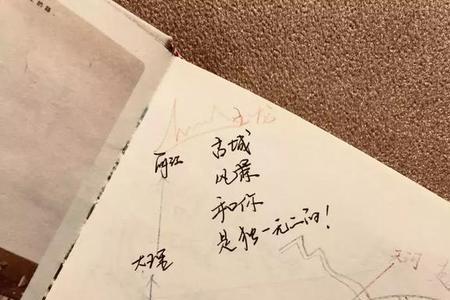 玉龙
丽江
古城
风
和你
是独一无二的!
大理
天河